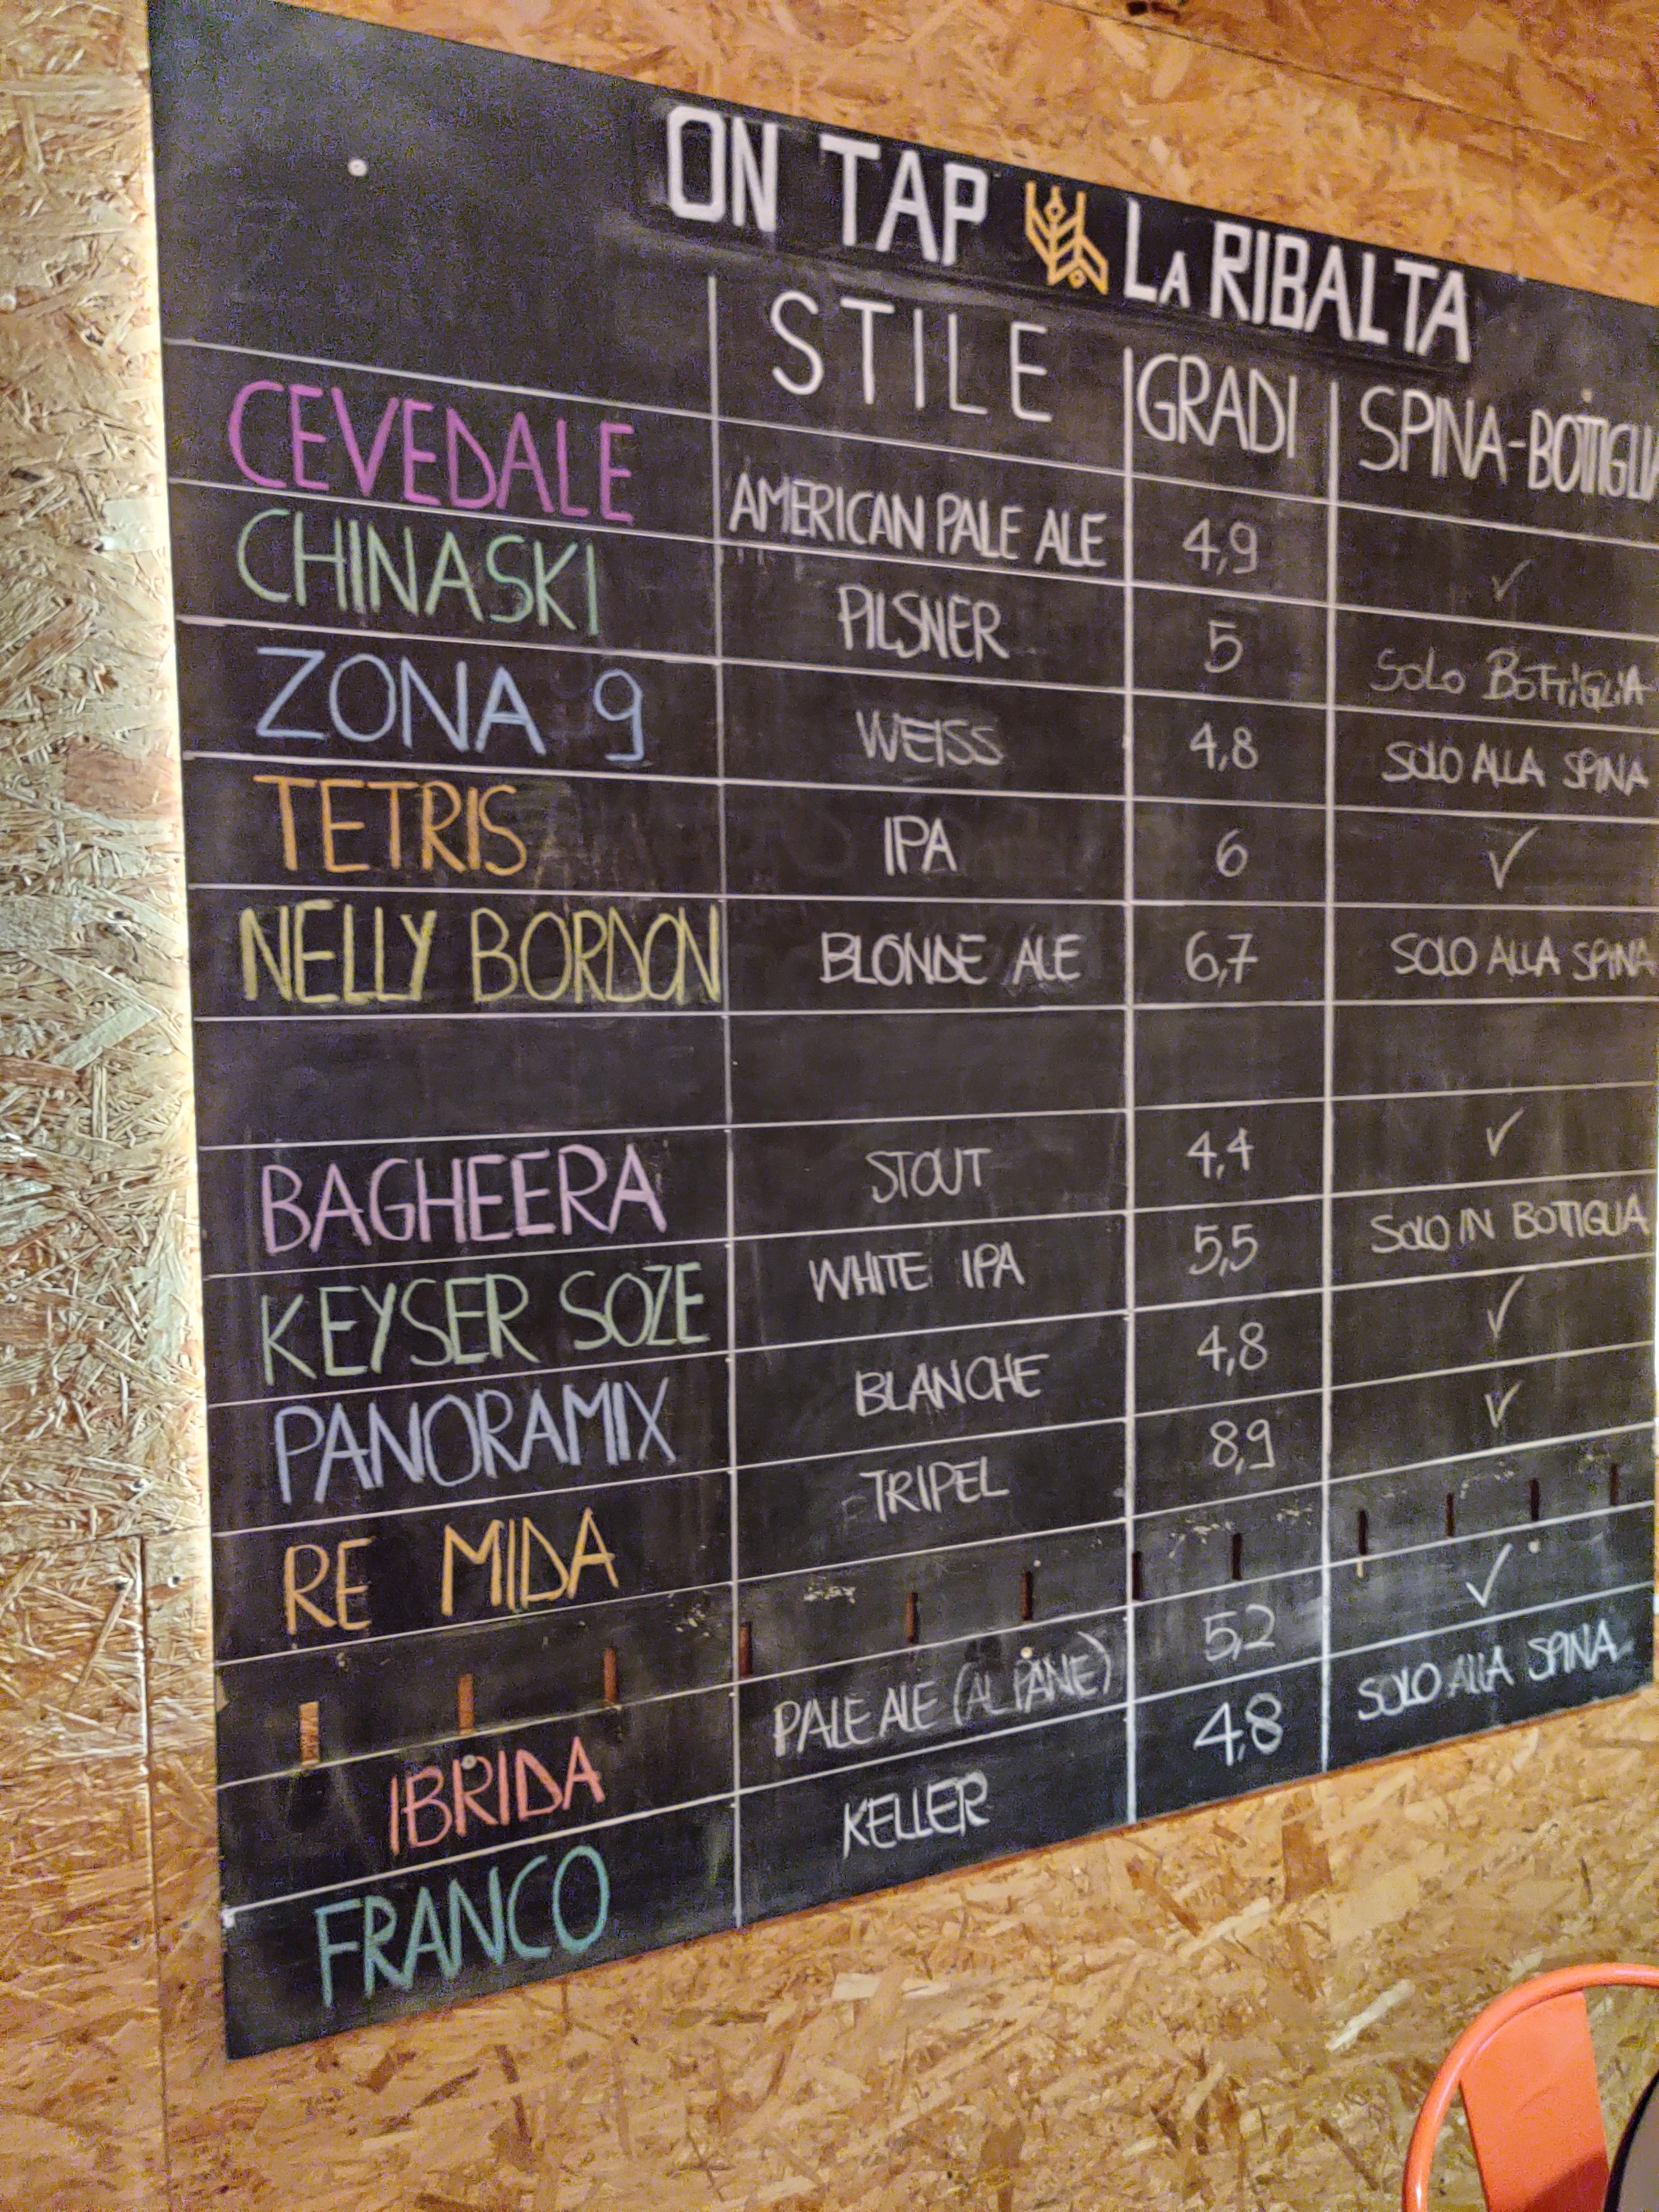 ON TAP LA RIBALTA
STILE GRADI SPINA-BOTTIGLIA
CEVEDALE AMERICAN PALE ALE 4,9 ✓
CHINASKI PILSNER 5 SOLO BOTTIGLIA
ZONA 9 WEISS 4,8 SOLO ALLA SPINA
TETRIS IPA 6 ✓
NELLY BORDON BLONDE ALE 6,7 SOLO ALLA SPINA
BAGHEERA STOUT 4,4 ✓
KEYSER SOZE WHITE IPA 5,5 SOLO IN BOTTIGLIA
PANORAMIX BLANCHE 4,8 ✓
RE MIDA TRIPEL 8,9 ✓
IBRIDA PALE ALE (AL PANE) 5,2 ✓
FRANCO KELLER 4,8 SOLO ALLA SPINA